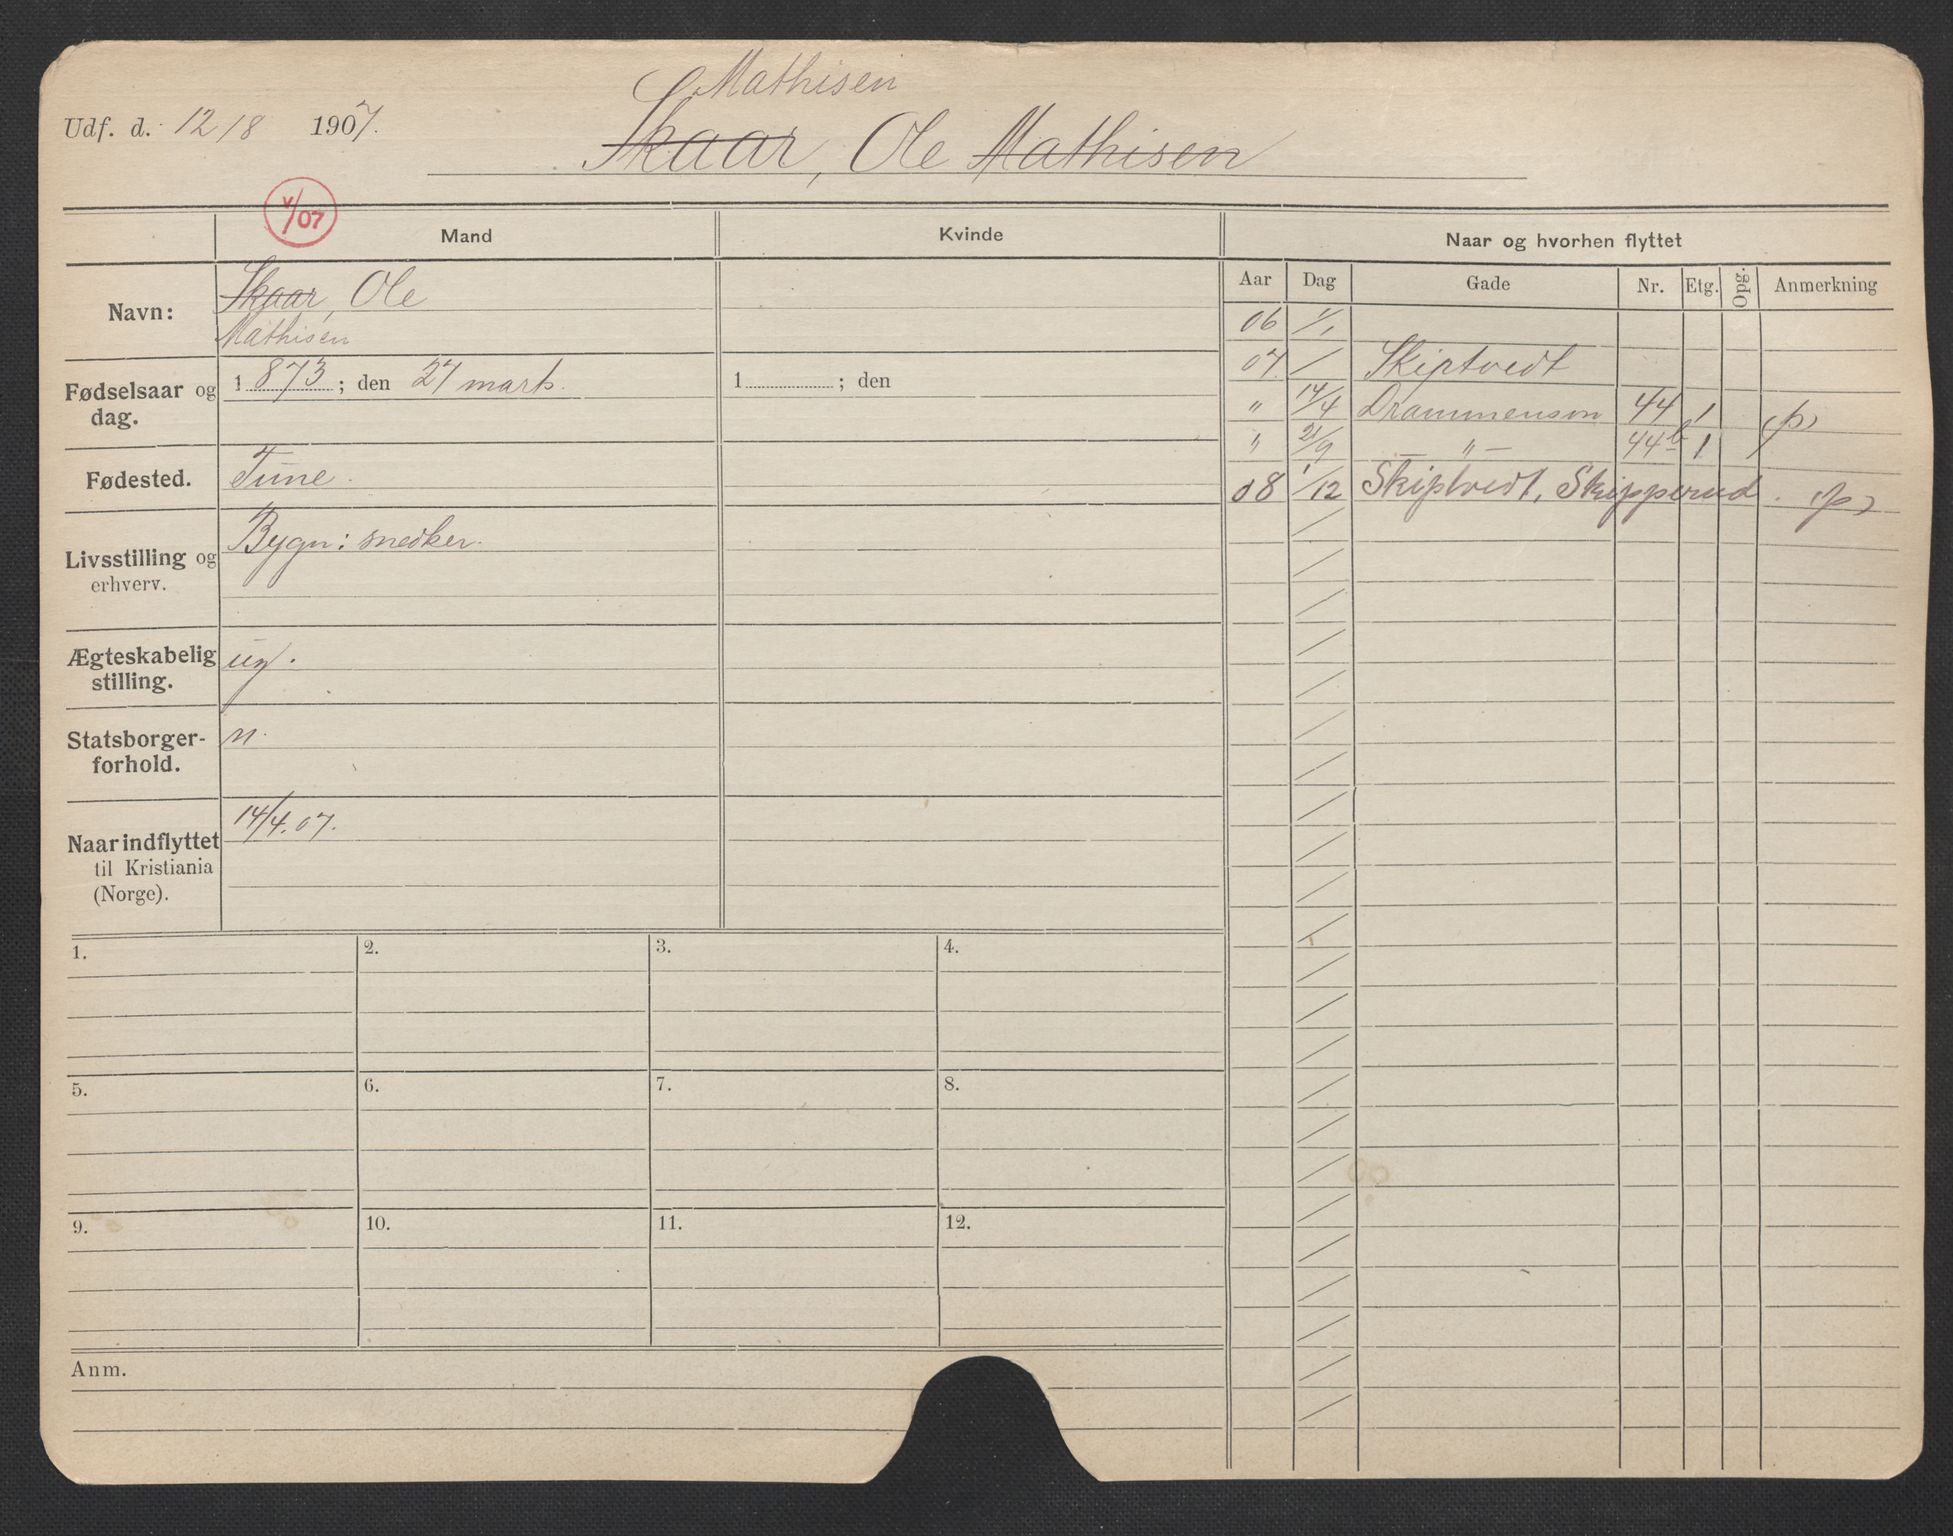 Mathisen
Udf. d. 12/8 1907.
Skaar, Ole Mathisen
V/07
Mand
Kvinde
Naar og hvorhen flyttet
Aar Dag Gade Nr. Etg. Opg. Anmerkning
Navn: Skaar, Ole
Mathisen
Fødselsaar og dag.
1873; den 27 marts.
1 ; den
Fødested. Tune.
Livsstilling og erhverv.
Bygn: snedker.
Ægteskabelig stilling.
ug.
Statsborger-forhold.
n.
Naar indflyttet til Kristiania (Norge).
14/4.07.
06 1/1
07 / Skiptvedt
" 14/4 Drammensvn 44 1 (p)
" 21/9 — " — 44b 1
08 1/12 Skiptvedt, Skipperud. (p)
1. 2. 3. 4.
5. 6. 7. 8.
9. 10. 11. 12.
Anm.